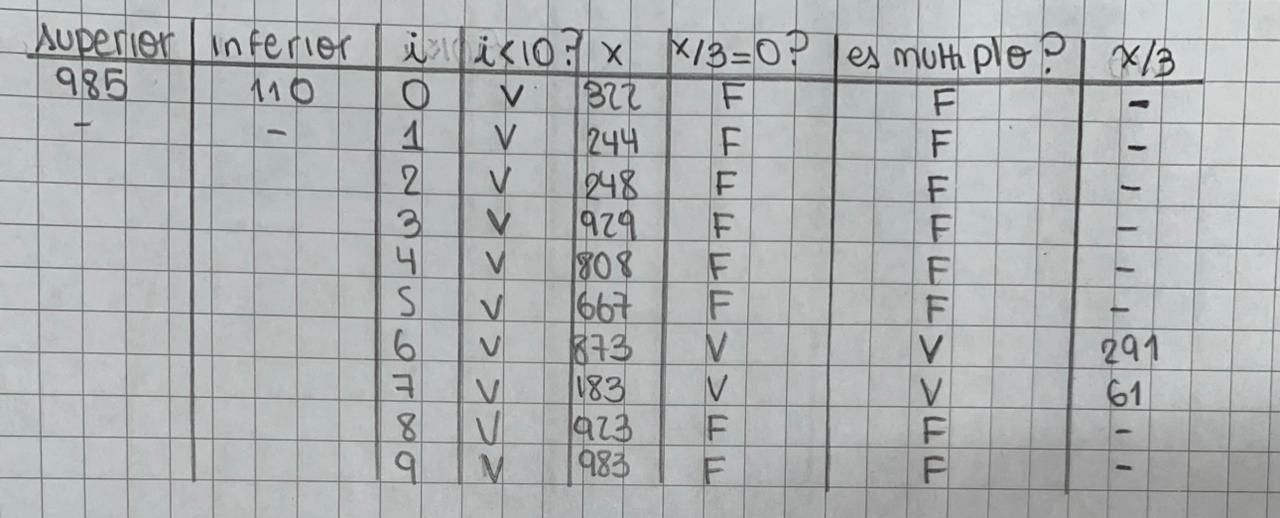 superior inferior i i<10? x x/3=0? es multiplo? x/3
985 110 0 V 322 F F -
- - 1 V 244 F F -
2 V 248 F F -
3 V 929 F F -
4 V 808 F F -
5 V 667 F F -
6 V 873 V V 291
7 V 183 V V 61
8 V 923 F F -
9 V 983 F F -